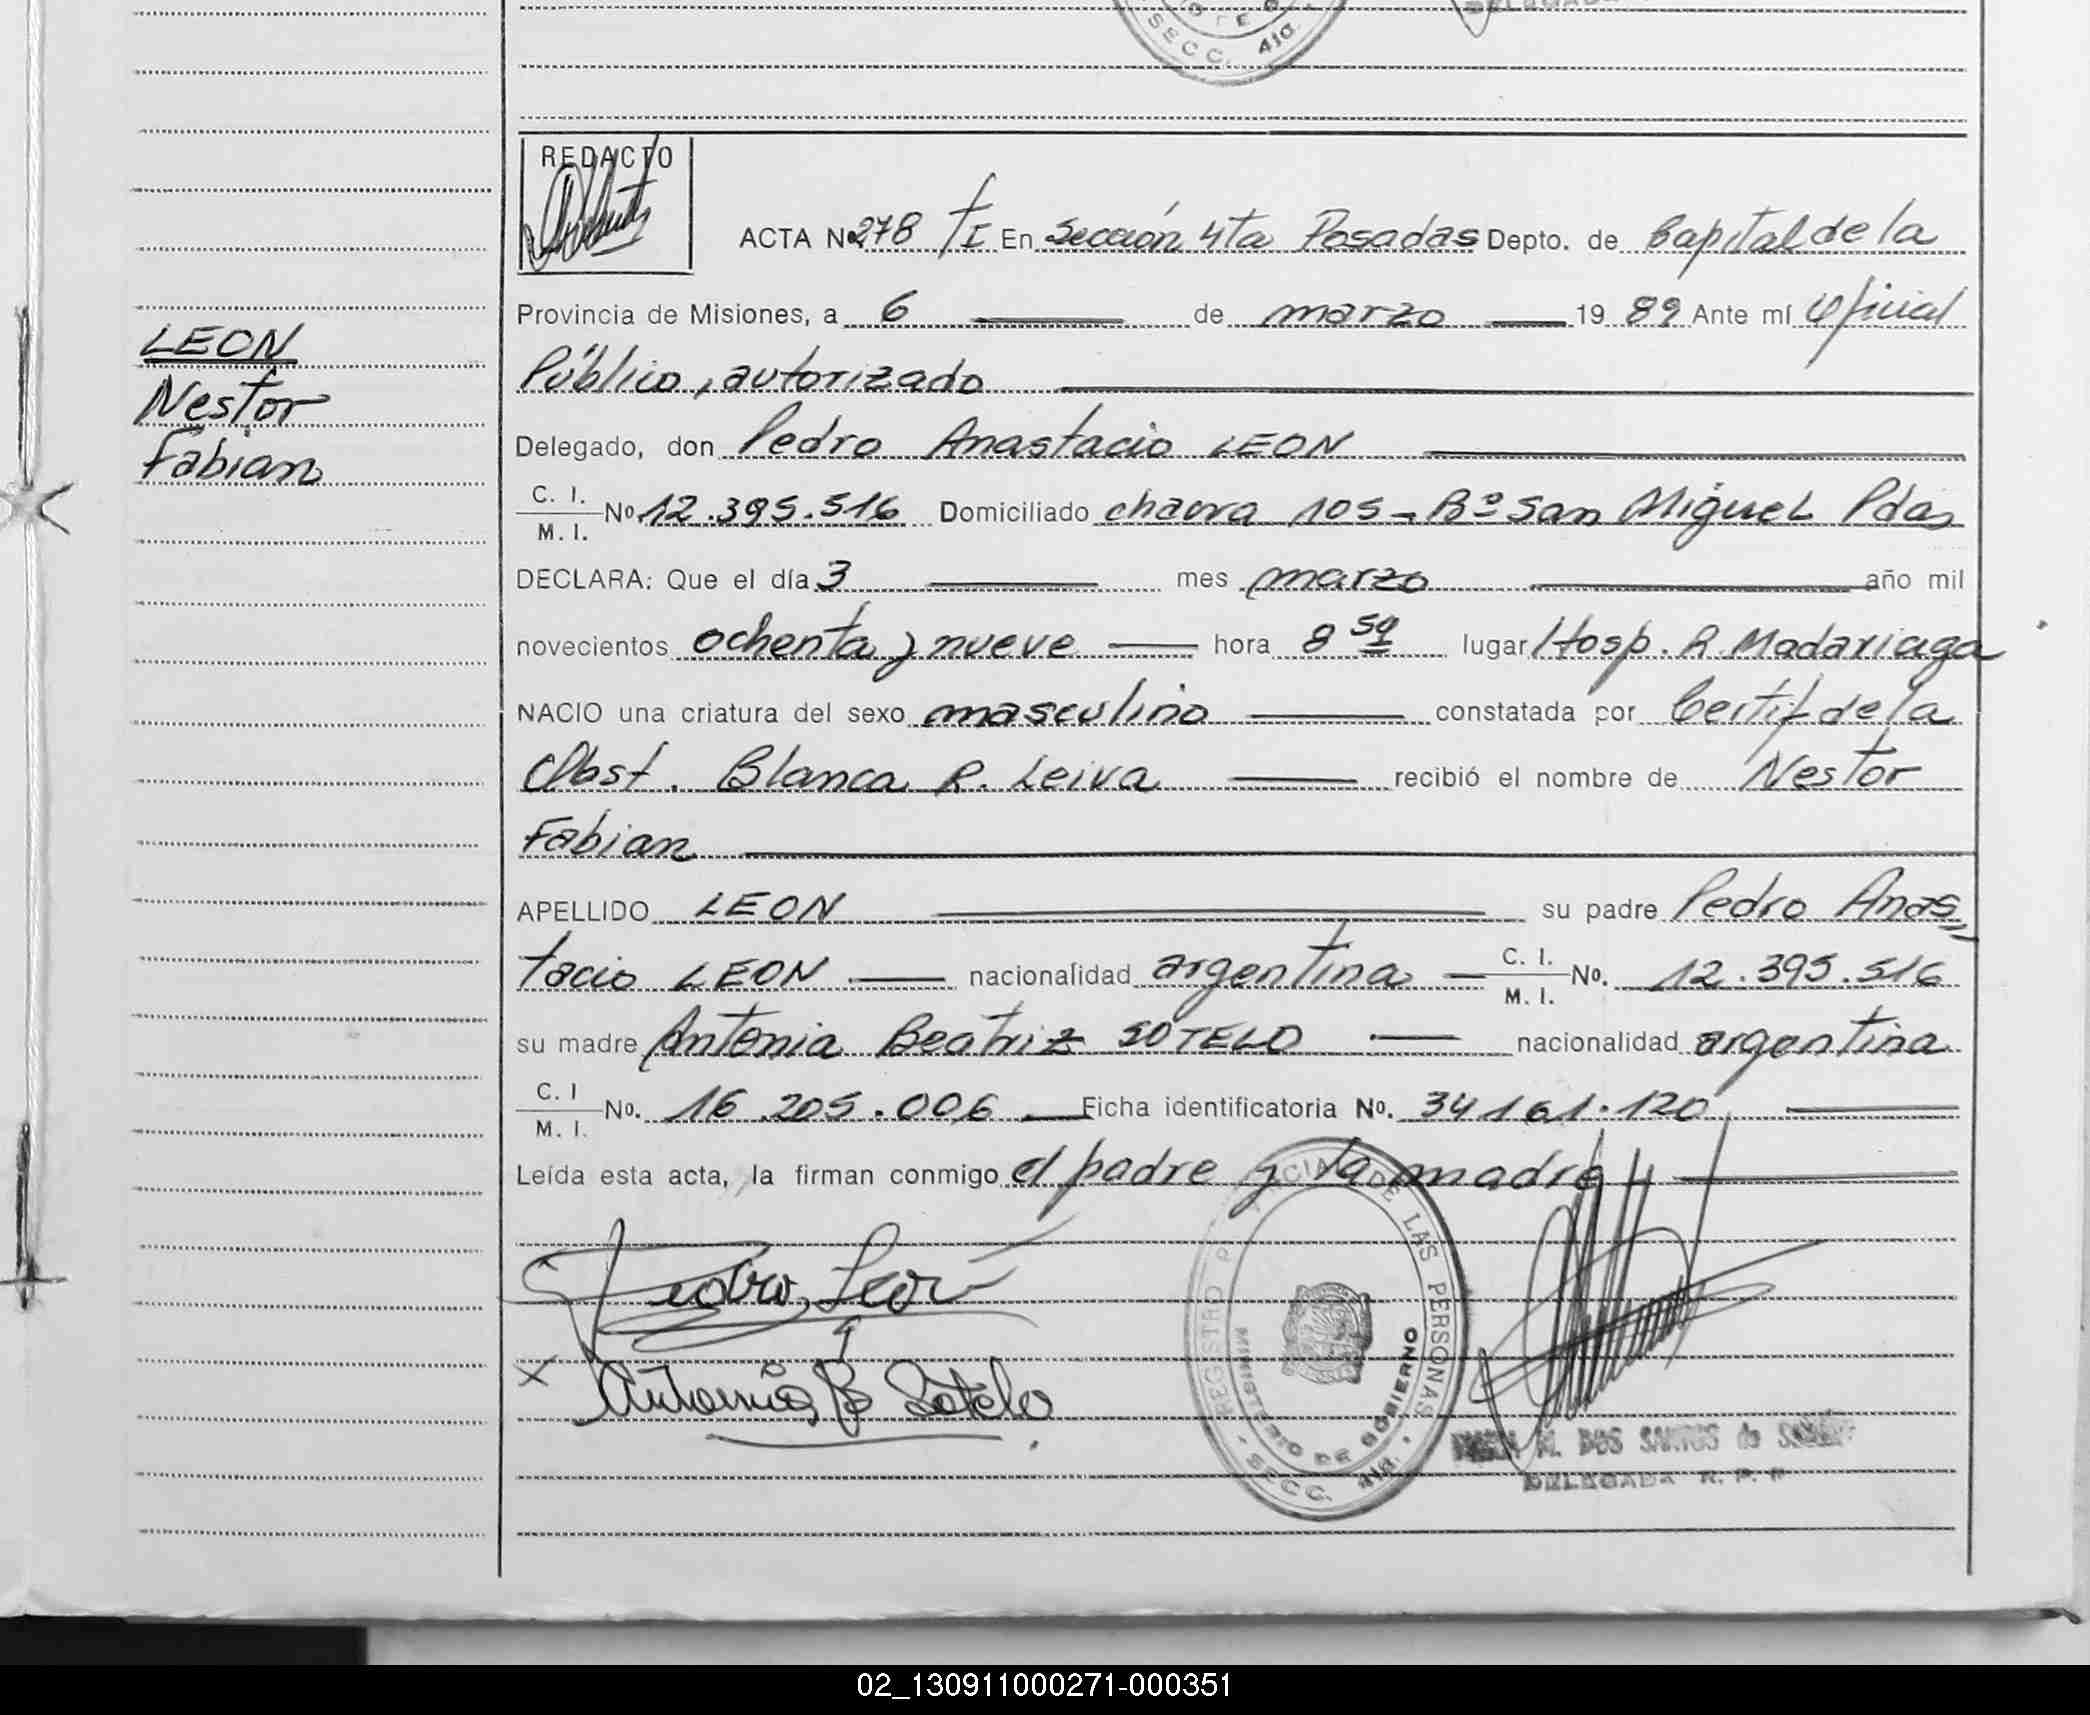 SECC. 4ta.
REDACTO
ACTA Nº 278 TI En Sección 4ta Posadas Depto. de Capital de la
Provincia de Misiones, a 6 de marzo 19 89 Ante mí Oficial
Público, autorizado
LEON
Nestor
Fabian
Delegado, don Pedro Anastacio LEON
C. I.
M. I. Nº 12.395.516 Domiciliado chacra 105 - Bº San Miguel Pdas
DECLARA: Que el día 3 mes marzo año mil
novecientos ochenta y nueve hora 8 50 lugar Hosp. R. Madariaga
NACIO una criatura del sexo masculino constatada por Certif de la
Obst. Blanca R. Leiva recibió el nombre de Nestor
Fabian
APELLIDO LEON su padre Pedro Anas-
tacio LEON nacionalidad argentina C. I.
M. I. No. 12.395.516
su madre Antonia Beatriz SOTELO nacionalidad argentina
C. I
M. I. No. 16.205.006 Ficha identificatoria No. 34161.120
Leída esta acta, la firman conmigo el padre y la madre
Pedro, Leon
X Antonia B Sotelo
REGISTRO P CIAL DE LAS PERSONAS
MINISTERIO DE GOBIERNO
SECC. 4ta.
M. DOS SANTOS de
DELEGADA R. P. P
02_130911000271-000351